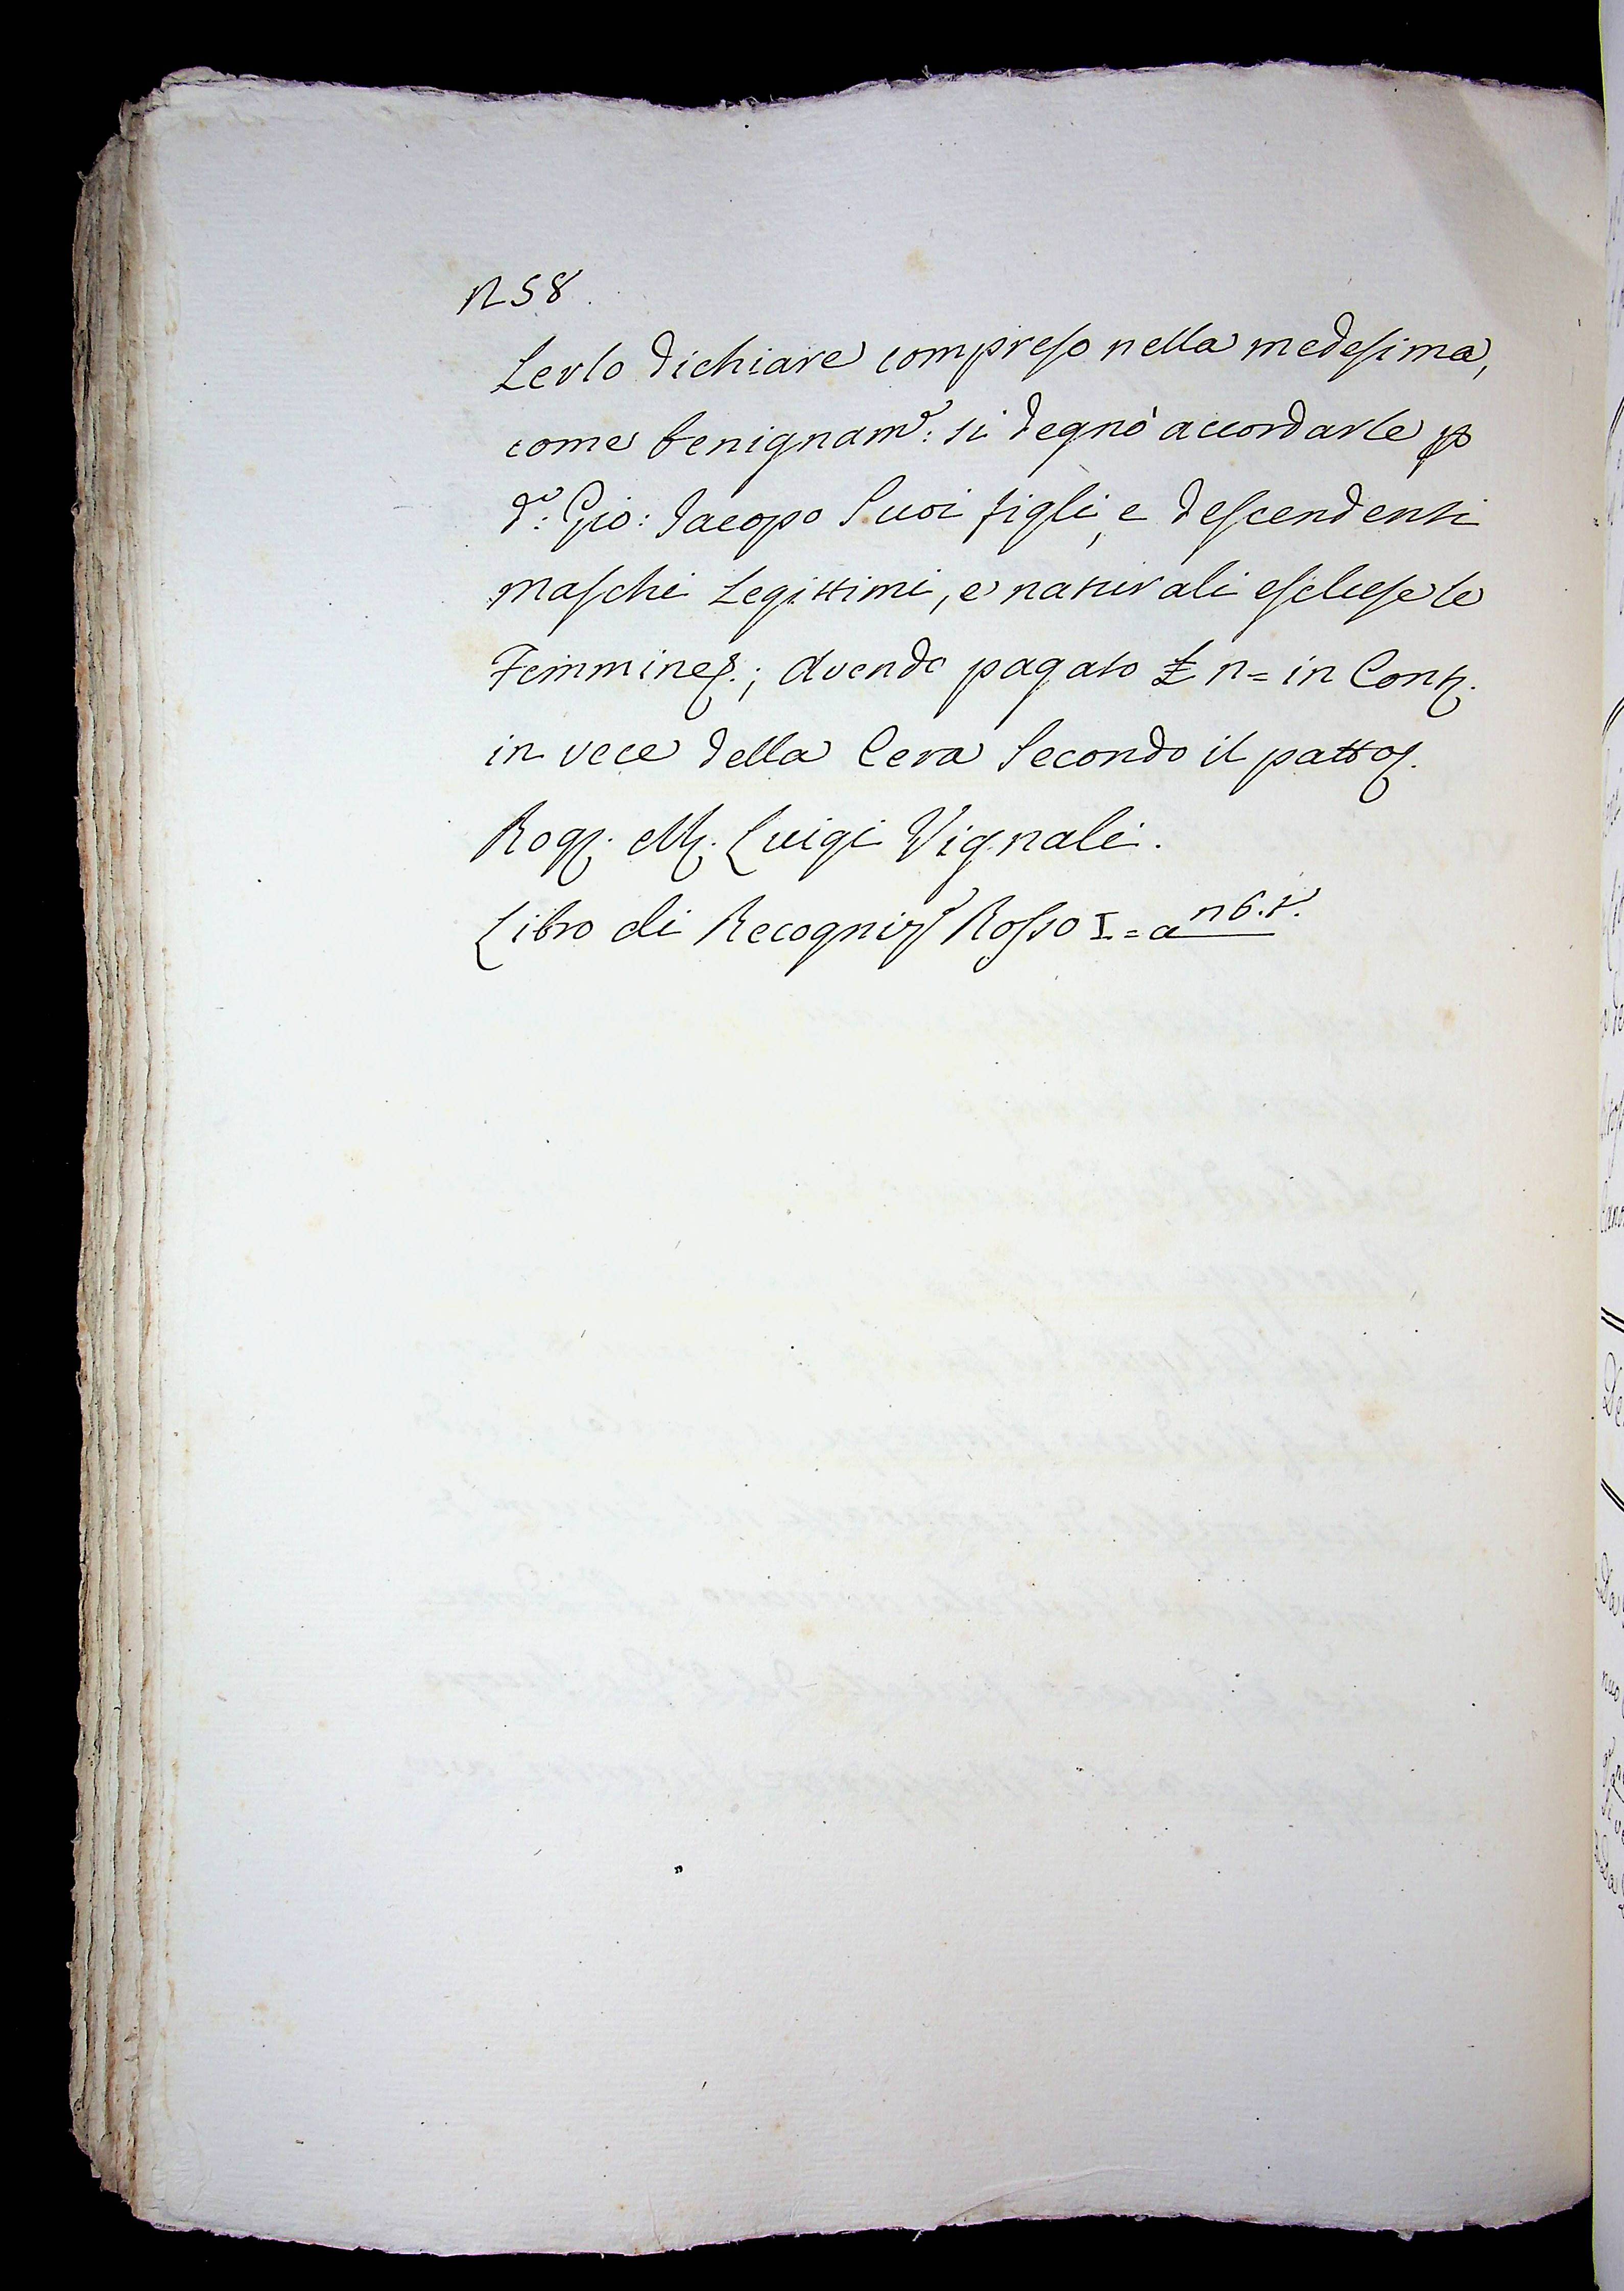 n 58.
Lerlo dichiare compreso nella medesima,
come benignam.e: si degnò accordarle p
d.o: Gio: Jacopo Suoi figli, e descendenti
maschi Legittimi, e naturali escluse le
Femmine; avendo pagato £ n= in Cont.
in vece della Cera Secondo il patto.
Rog. M. Luigi Vignali.
Libro di Recogniz.e Rosso I = a